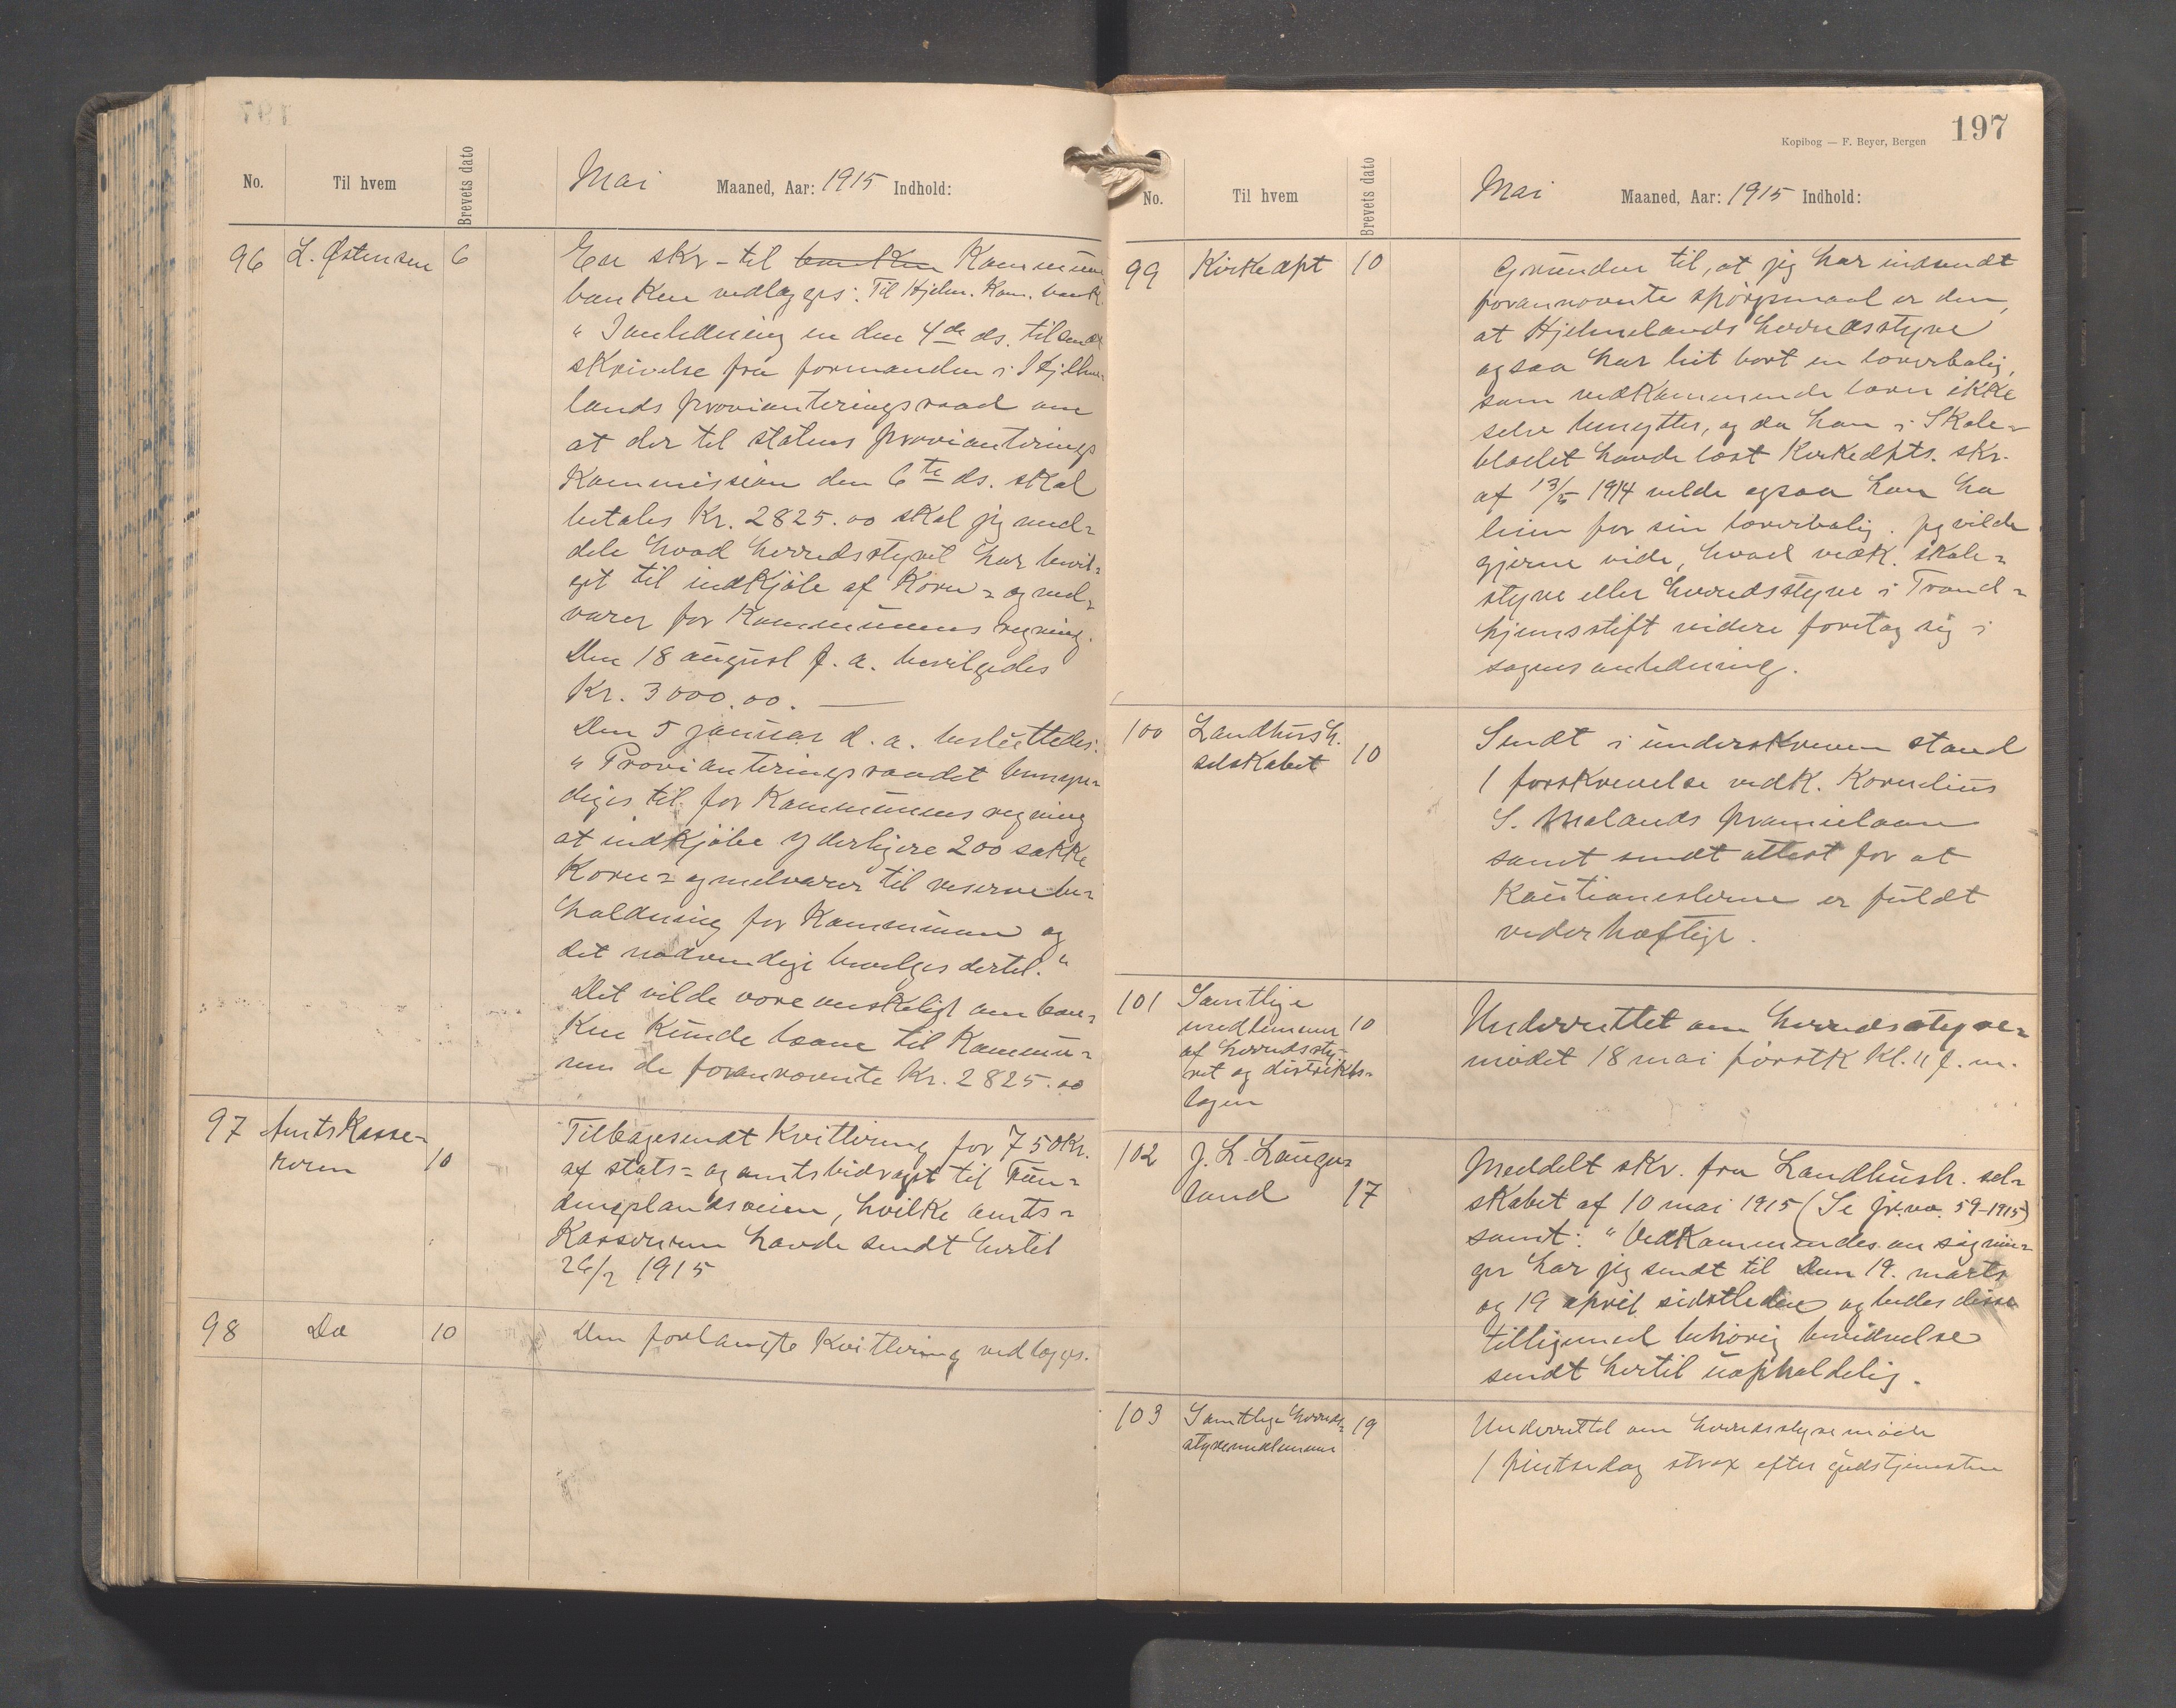 No.
Til hvem
Brevets dato
Mai Maaned, Aar: 1915 Indhold:
96 L. Østensen 6 En skr - til banken Kommune
banken vedlægges: Til Hjelm. Kom. bank.
" I anledning en den 4de ds. tilsendt
skrivelse fra formanden i Hjelme-
lands provianteringsraad om
at der til statens provianterings
Kommission den 6te ds. skal
betales Kr. 2825.00 skal jeg med=
dele hvad herredsstyret har bevil=
get til indkjøb af Korn= og mel=
varer for Kommunens regning.
Den 18 august f. a. bevilgedes
Kr. 3000.00.
Den 5 januar d. a. besluttedes:
" Provianteringsraadet bemyn=
diges til for Kommunens regning
at indkjøbe yderligere 200 sække
Korn= og melvarer til reservebe=
holdning for Kommunen og
det nødvendige bevilges dertil."
Det vilde være ønskeligt om ban=
ken kunde laane til Kommu=
nen de forannævnte Kr. 2825.00
97 Amtskasse=
reren 10 Tilbagesendt Kvittering for 750 Kr.
af stats= og amtsbidraget til
veien, hvilke amts=
Kassereren havde sendt hertil
26/2 1915
98 Do 10 Den forlangte Kvittering vedlægges.
197
Kopibog — F. Beyer, Bergen
No.
Til hvem
Brevets dato
Mai Maaned, Aar: 1915 Indhold:
99 Kirkedpt 10 Grunden til, at jeg har indsendt
forannævnte spørgsmaal er den,
at Hjelmelands herredsstyre
ogsaa har leiet bort en lærerbolig,
som vedkommende lærer ikke
selv benytter, og da han i Skole=
bladet havde læst Kirkedpts. skr.
af 13/5 1914 vilde ogsaa han ha
leien for sin lærerbolig. Jeg vilde
gjerne vide, hvad vedk. skole=
styre eller herredsstyre i Trond=
hjems stift videre foretog sig i
sagens anledning.
100 Landhush.
selskabet 10 Sendt i underskreven stand
1 forskrevelse vedk. Kornelius
S. Mælands præmielaan
samt sendt attest for at
Kautionisterne er fuldt
vederhæftige.
101 Samtlige
medlemmer 10
af herredssty-
ret og distrikts=
lægen
Underrettet om herredsstyre=
mødet 18 mai førstk Kl. 11 f. m.
102 J. L. Lauge=
land 17 Meddelt skr. fra Landhush. sel=
skabet af 10 mai 1915 (Se jr.no. 59-1915)
samt: " Vedkommendes ansøgnin=
ger har jeg sendt til Dem 19. marts
og 19 april sidstleden og bedes disse
tilligemed behørig bevidnelse
sendt hertil uopholdelig.
103 Samtlige herreds=
styremedlemmer 19 Underrettet om herredsstyremøde
1 pintsedag strax efter gudstjenesten